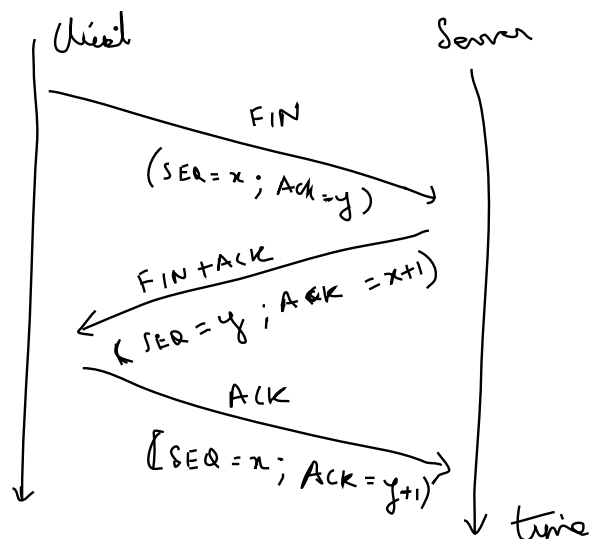 Client
Server
FIN
(SEQ = x ; Ack = y)
FIN + ACK
(SEQ = y ; ACK = x+1)
ACK
[SEQ = x ; ACK = y+1)
time